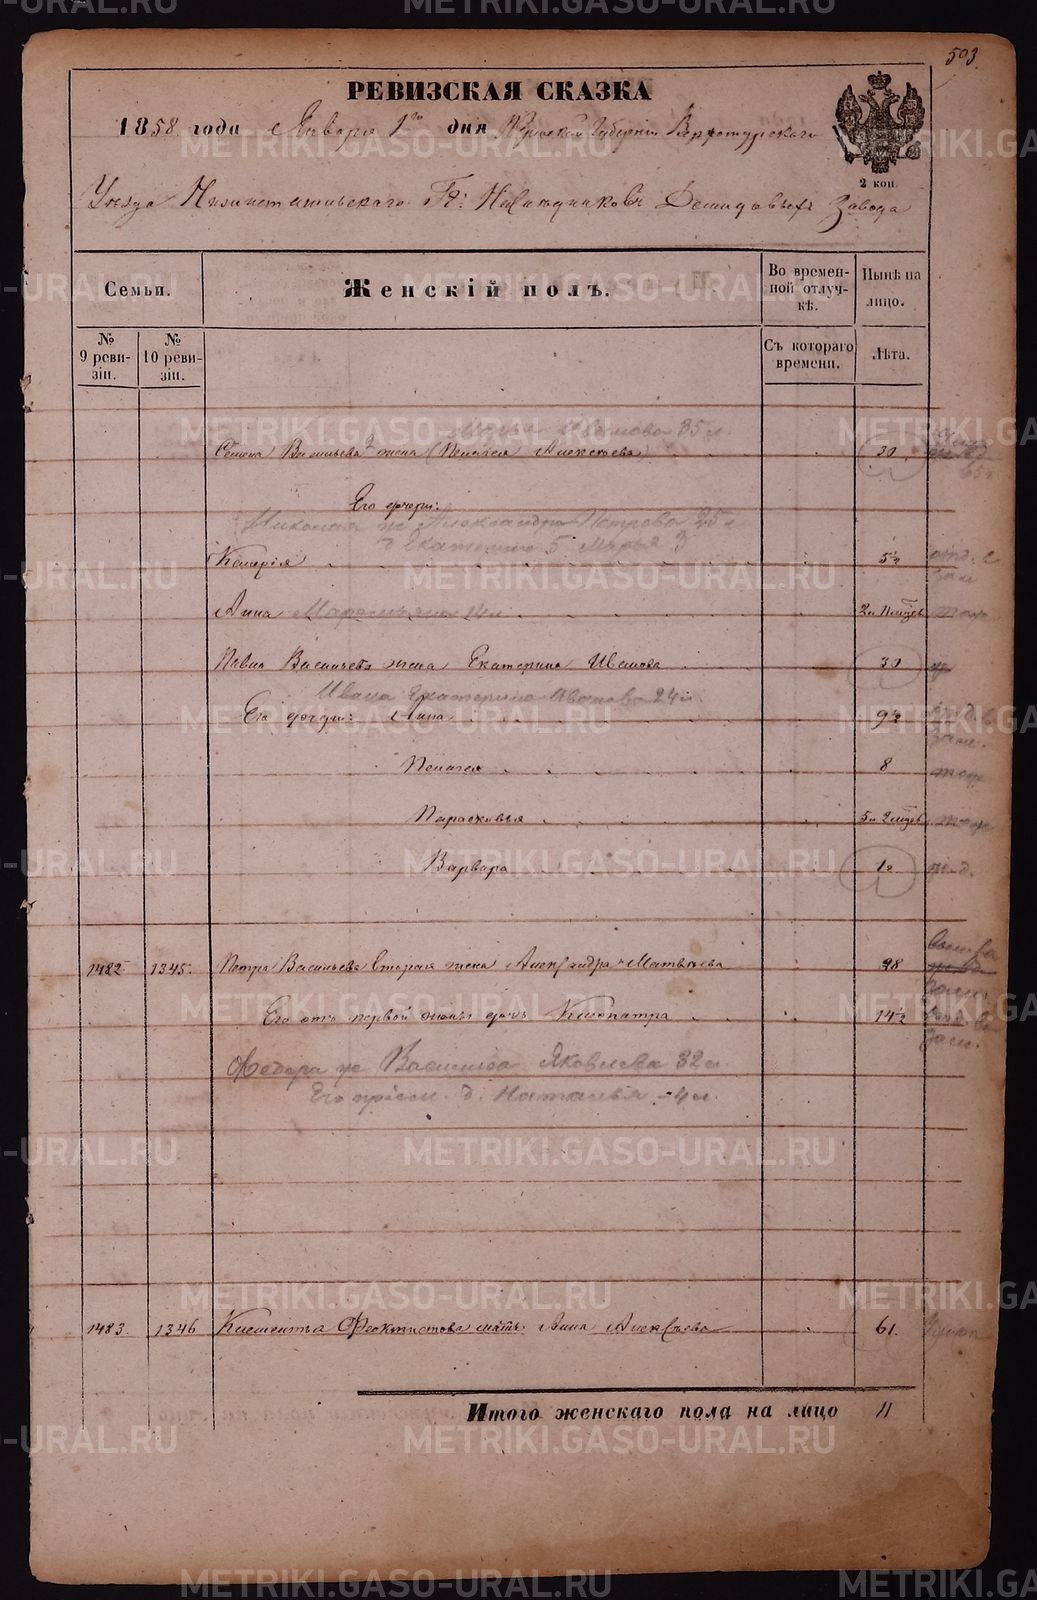 503.
РЕВИЗСКАЯ СКАЗКА
1858 года Января 1го дня Пермской Губерніи Верхотурскаго
2 коп.
Уезда Нижнетагильскаго Гд: Наследниковъ Демидовыхъ Завода
Семьи.
Женскій полъ.
Во времен-
ной отлуч-
кѣ.
Нынѣ на
лицо.
№
9 реви-
зіи.
№
10 реви-
зіи.
Съ котораго
времени.
Лѣта.
Марья Иванова 35 л.
Семена Васильева 2 жена (Пелагея Алексеева) 30
Его дочери:
Николая ж Александра Петрова 25 л
д Екатерина 5 Марья 3
Калерія 5½
Анна 2 и 11 мцев
Павла Васильева жена Екатерина Иванова 30
Ивана Екатерина Иванова 24 л.
Его дочери: Анна 9½
Пелагея 8
Парасковья 5 и 2 мцев
Варвара
1482 1345. Петра Васильева Вторая жена Александра Матвеева 28
Его отъ первой жены дочь Клеопатра 14½
Федора ж Василиса Яковлева 32 л.
Его д. Наталья - 4 л.
1483. 1346 Клементья Феоктистова мать Анна Алексеева 61.
Итого женскаго пола на лицо 11
METRIKI.GASO-URAL.RU